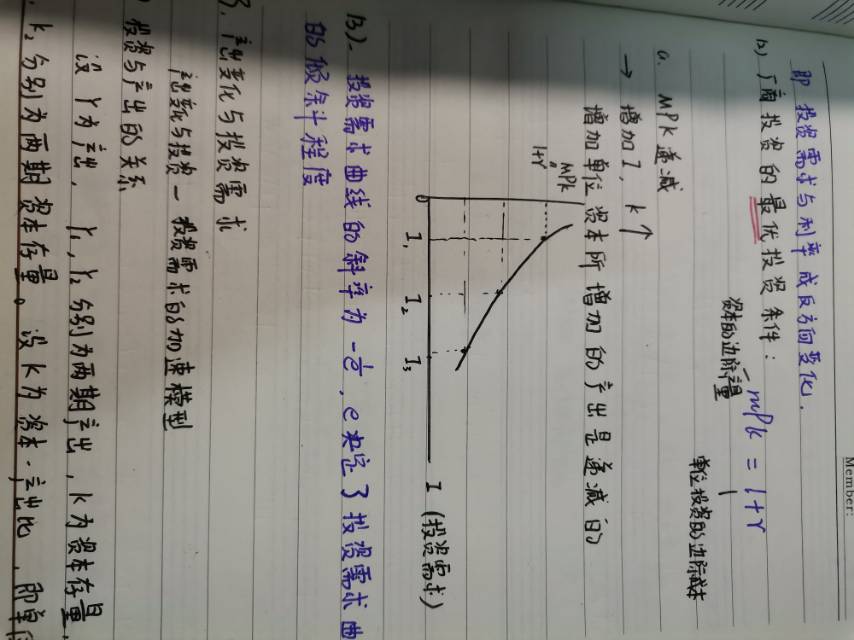 Member:
即 投资需求与利率成反方向变化.
(2) 厂商投资的最优投资条件: MPK = 1+r
资本的边际产量
单位投资的边际成本
a. MPK递减
→ 增加I, K↑
增加单位资本所增加的产出是递减的
MPK
1+r
0
I₁
I₂
I₃
I (投资需求)
(3). 投资需求曲线的斜率为 -1/e, e决定了投资需求曲
的倾斜程度
3. 产出变化与投资需求
产出变化与投资 — 投资需求的加速模型
投资与产出的关系
设 Y为产出, Y₁, Y₂分别为两期产出, K为资本存量,
K₂分别为两期资本存量。设K为资本-产出比, 即单